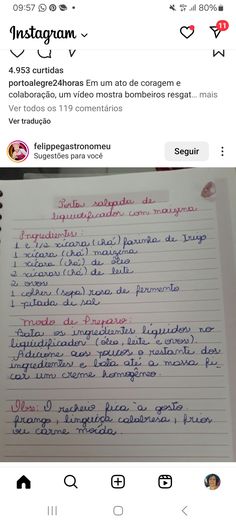 09:57
80%
Instagram
11
4.953 curtidas
portoalegre24horas Em um ato de coragem e
colaboração, um vídeo mostra bombeiros resgat... mais
Ver todos os 119 comentários
Ver tradução
felippegastronomeu
Sugestões para você
Seguir
Torta salgada de
liquidificador com maizena
Ingredientes:
1 e 1/2 xícara (chá) farinha de trigo
1 xícara (chá) maizena
1 xícara (chá) de óleo
2 xícaras (chá) de leite
2 ovos
1 colher (sopa) rasa de fermento
1 pitada de sal
Modo de Preparo:
Bata os ingredientes líquidos no
liquidificador (óleo, leite e ovos).
Adicione aos poucos o restante dos
ingredientes e bata até a massa fi-
car um creme homogêneo.
Obs: O recheio fica a gosto
frango, linguiça calabresa, frios
ou carne moída.